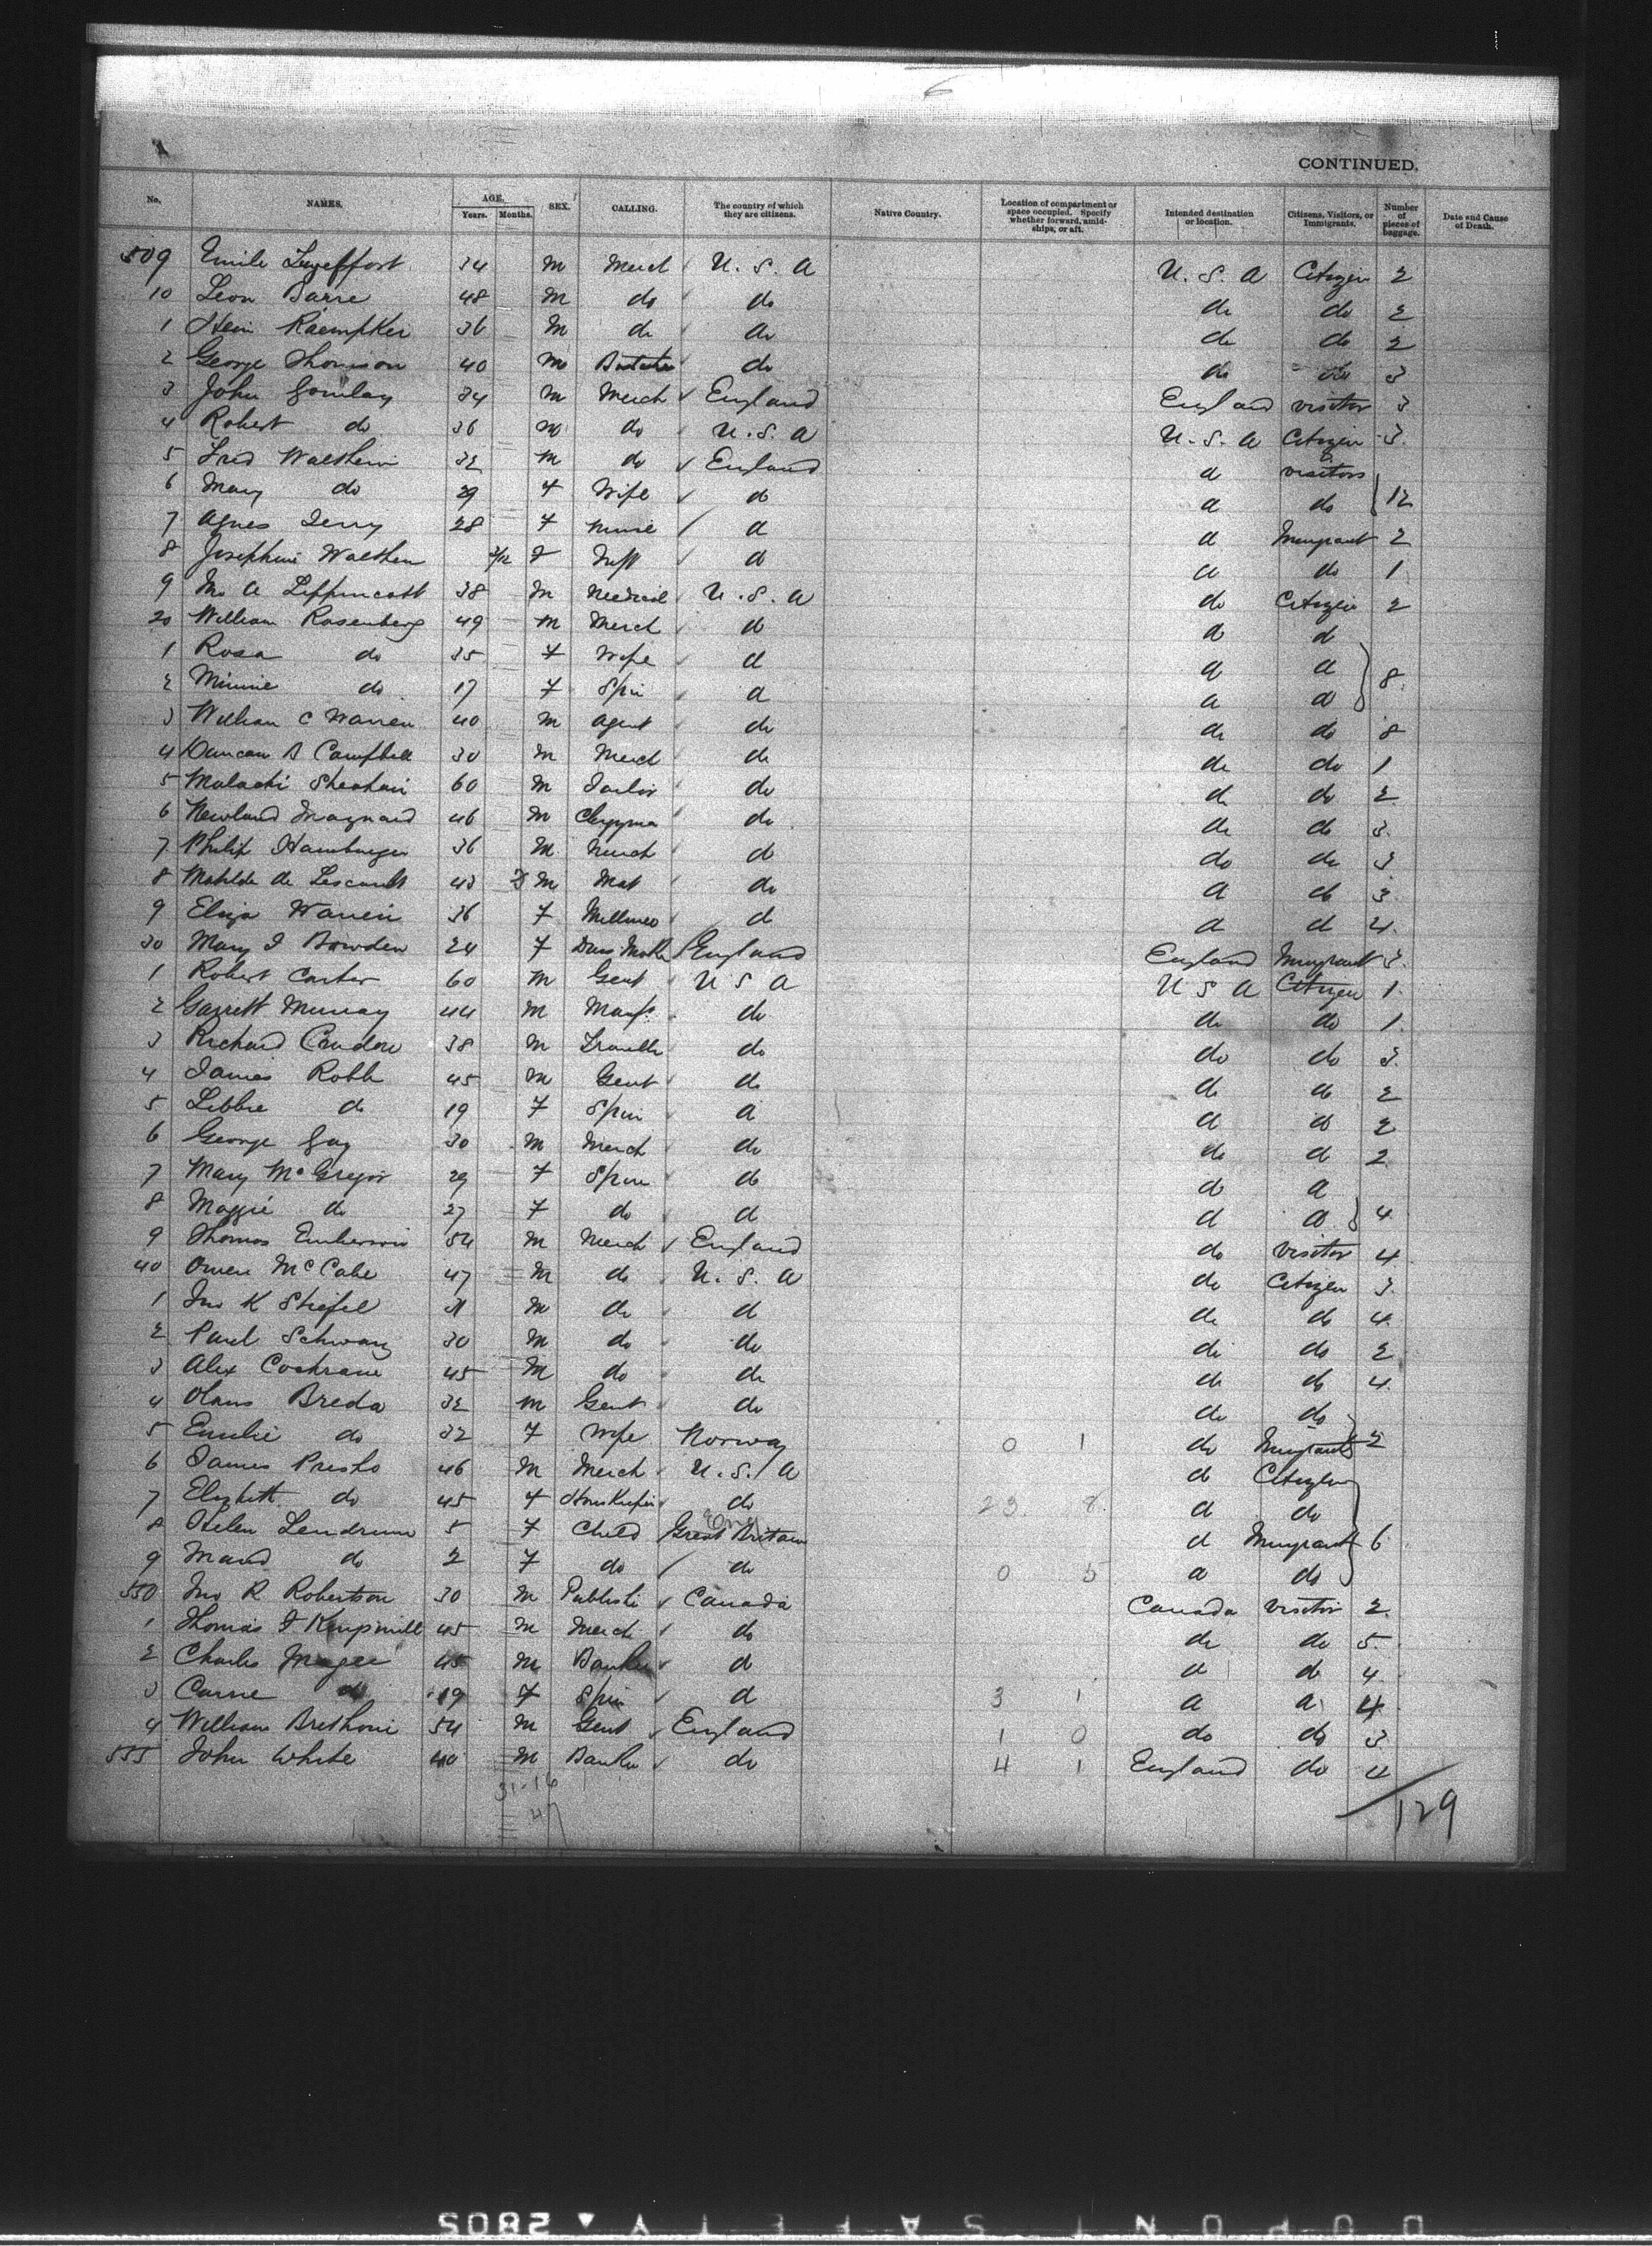 6
CONTINUED.
No. NAMES. AGE. Years. Months. SEX. CALLING. The country of which they are citizens. Native Country. Location of compartment or space occupied. Specify whether forward, amidships, or aft. Intended destination or location. Citizens, Visitors, or Immigrants. Number of pieces of baggage. Date and Cause of Death.
509 Emile 34 M Merch U. S. A U. S. A Citizen 2
10 Leon Barre 48 M do do do do 2
1 Raempker 36 M do do do do 2
2 George Thomson 40 M do do do 3
3 John Gourlay 34 M Merch England England visitor 3
4 Robert do 36 M do U. S. A U. S. A Citizen 3
5 Fred 32 M do England d visitors
6 Mary do 29 F Wife do d do 12
7 Agnes Terry 28 F Nurse d d Imigrant 2
8 Josephine F d d do 1
9 A Lippincott 38 M Medical U. S. A do Citizen 2
20 William Rosenberg 49 M Merch d d d
1 Rosa do 35 F Wife d d d 8
2 Minnie do 17 F Spin d d d
3 William C Warren 40 M Agent do do do 8
4 Duncan B Campbell 30 M Merch do do do 1
5 Malachi 60 M Tailor do do do 2
6 Newland Maynard 46 M do do do 3
7 Philip Hamburger 36 M Merch d do do 3
8 Mathilde de 43 M do d do 3
9 Eliza Warren 36 F d d d 4
30 Mary Bowden 24 F England England Imigrant 3
1 Robert Carter 60 M Gent U S A U S A Citizen 1
2 Garrett Murray 44 M Manf do do do 1
3 Richard 38 M do do do 3
4 James Robb 45 M Gent do do do 2
5 Libbie do 19 F Spin d d do 2
6 George Gay 30 M Merch do do d 2
7 Mary McGregor 29 F Spin do d d
8 Maggie do 27 F do d d d 4
9 Thomas 54 M Merch England do Visitor 4
40 Owen McCabe 47 M do U. S. A do Citizen 3
1 Jno K Stiefel 31 M do d do do 4
2 Paul Schwarz 30 M do do do do 2
3 Alex Cochrane 45 M do do do do 4
4 Olaus Breda 32 M Gent do do do
5 Emilie do 32 F Wife Norway 0 1 do Imigrants 2
6 James Presho 46 M Merch U. S. A d Citizen
7 do 45 F do 23 8 d do
8 Helen Lendrum 5 F Child Great Britain Eng d Imigrant 6
9 Maud do 2 F do do 0 5 d do
550 Jno R Robertson 30 M Canada Canada Visitor 2
1 Thomas 45 M Merch do do do 5
2 Charles Magee 45 M Banker d d d 4
3 Carrie do 19 F Spin d 3 1 d d 4
4 William 54 M Gent England 1 0 do do 3
555 John White 40 M Banker do 4 1 England do 4
31-16
47
129
DUPONT SAFETY 2805